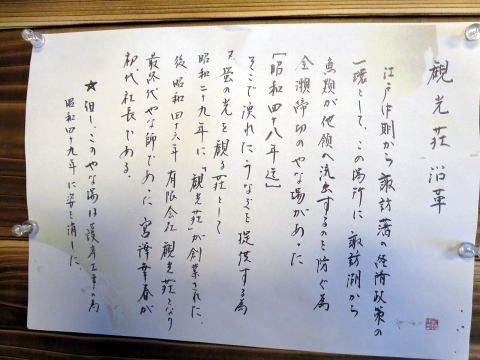 観光荘沿革
江戸時期から諏訪藩の経済政策の
一環として、この場所に諏訪湖から
魚類が他領へ流出するのを防ぐ為
全瀬締切のやな場があった
[昭和四十八年迄]
そこで漁れたうなぎを提供する為
又、蛍の光を観る荘として
昭和二十九年に、「観光荘」が創業された。
後昭和四十六年 有限会社 観光荘となり
最終代やな師であった 宮澤幸春が
初代社長である。
★但し、このやな場は護岸工事の為
昭和四十九年に姿を消した。